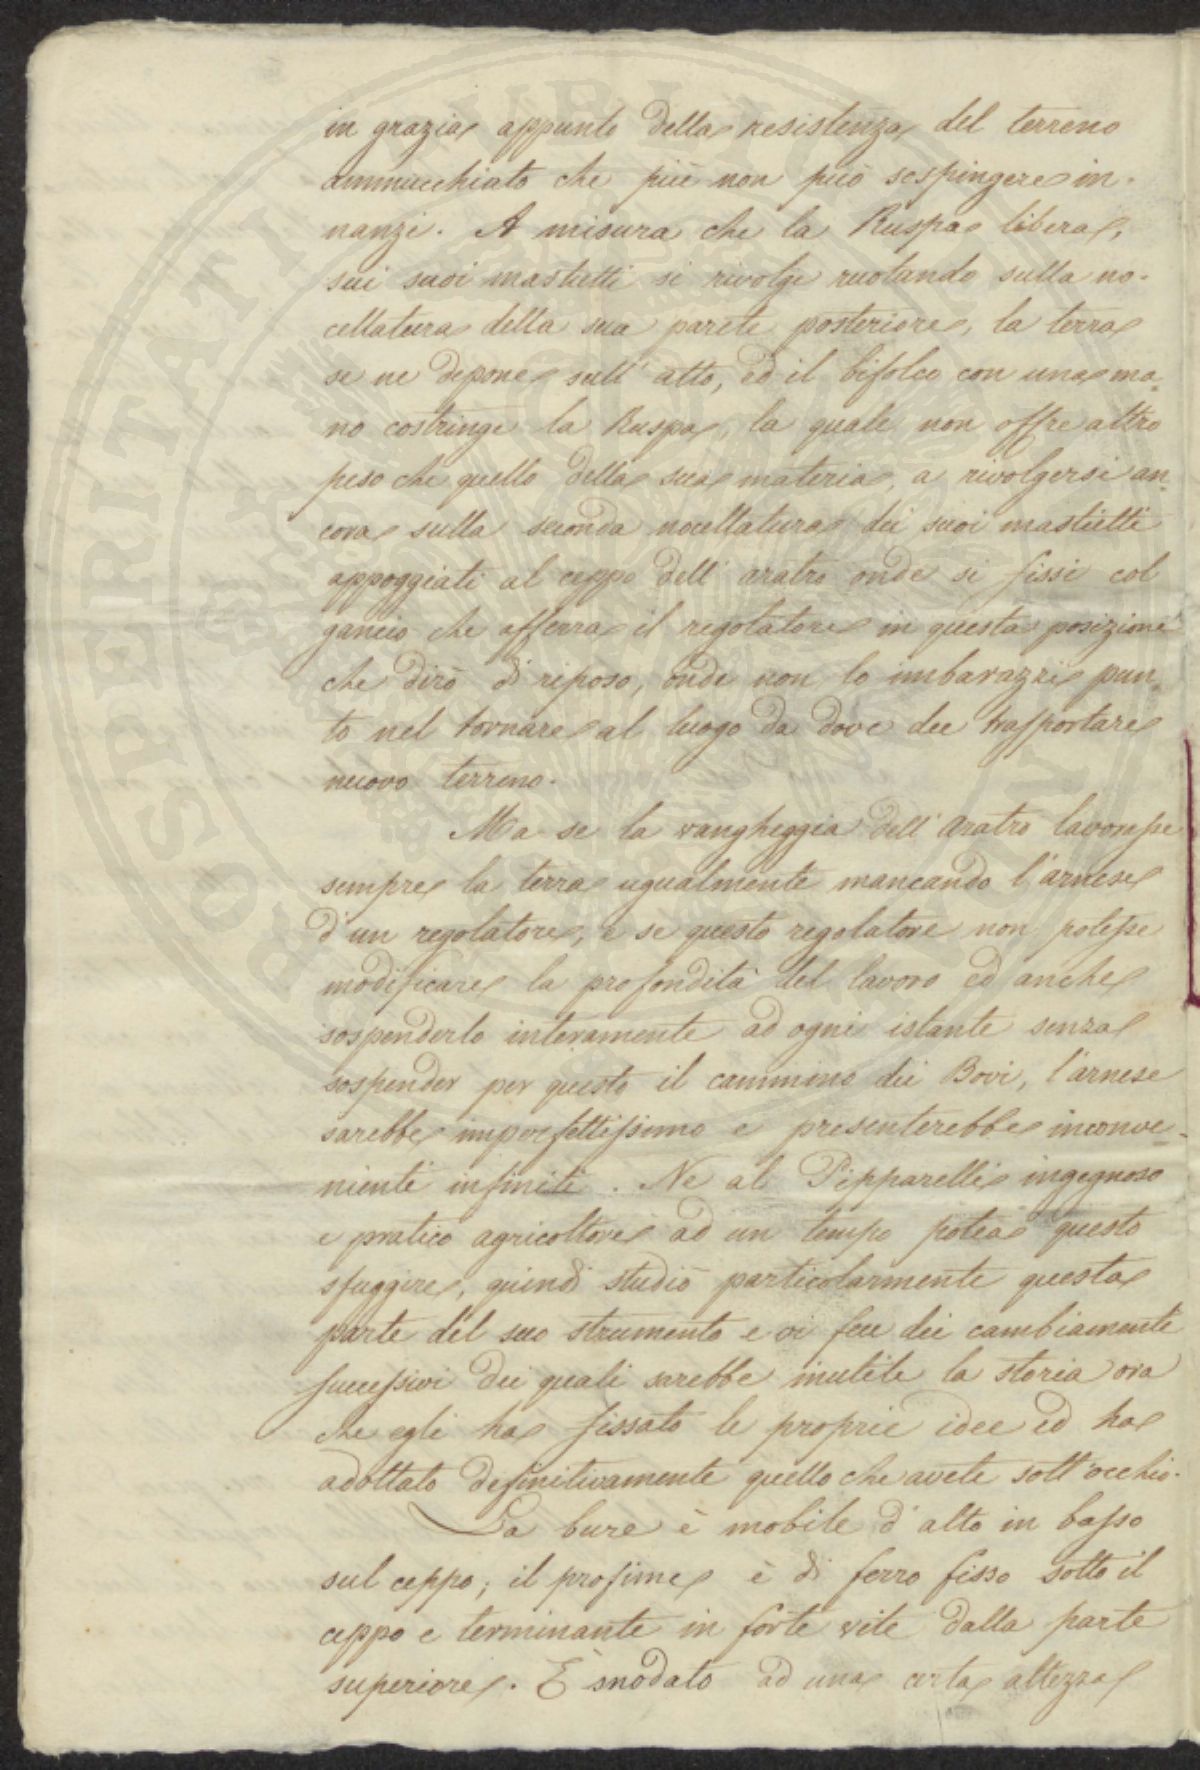 in grazia appunto della resistenza del terreno
ammucchiato che più non può sospingere in-
nanzi. A misura che la Ruspa libera,
sui suoi mastietti si rivolge ruotando sulla no-
cellatura della sua parete posteriore, la terra
se ne depone sull' atto, ed il bifolco con una ma-
no costringe la Ruspa, la quale non offre altro
peso che quello della sua materia, a rivolgersi an-
cora sulla seconda nocellatura dei suoi mastietti
appoggiati al ceppo dell' aratro onde si fissi col
gancio che afferra il regolatore in questa posizione
che dirò di riposo, onde non lo imbarazzi pun-
to nel tornare al luogo da dove dee trasportare
nuovo terreno.
Ma se la vangheggia dell' Aratro lavorasse
sempre la terra ugualmente mancando l'arnese
d'un regolatore, e se questo regolatore non potesse
modificare la profondità del lavoro ed anche
sospenderlo interamente ad ogni istante senza
sospender per questo il cammino dei Bovi, l'arnese
sarebbe imperfettissimo e presenterebbe inconve-
nienti infiniti. Ne al Pipparelli ingegnoso
e pratico agricoltore ad un tempo potea questo
sfuggire, quindi studiò particolarmente questa
parte del suo strumento e vi fece dei cambiamenti
successivi dei quali sarebbe inutile la storia ora
che egli ha fissato le proprie idee ed ha
adottato definitivamente quello che avete sott'occhio.
La bure è mobile d'alto in basso
sul ceppo; il profime è di ferro fisso sotto il
ceppo e terminante in forte vite dalla parte
superiore. È snodato ad una certa altezza
PROSPERITATI PUBLICAE